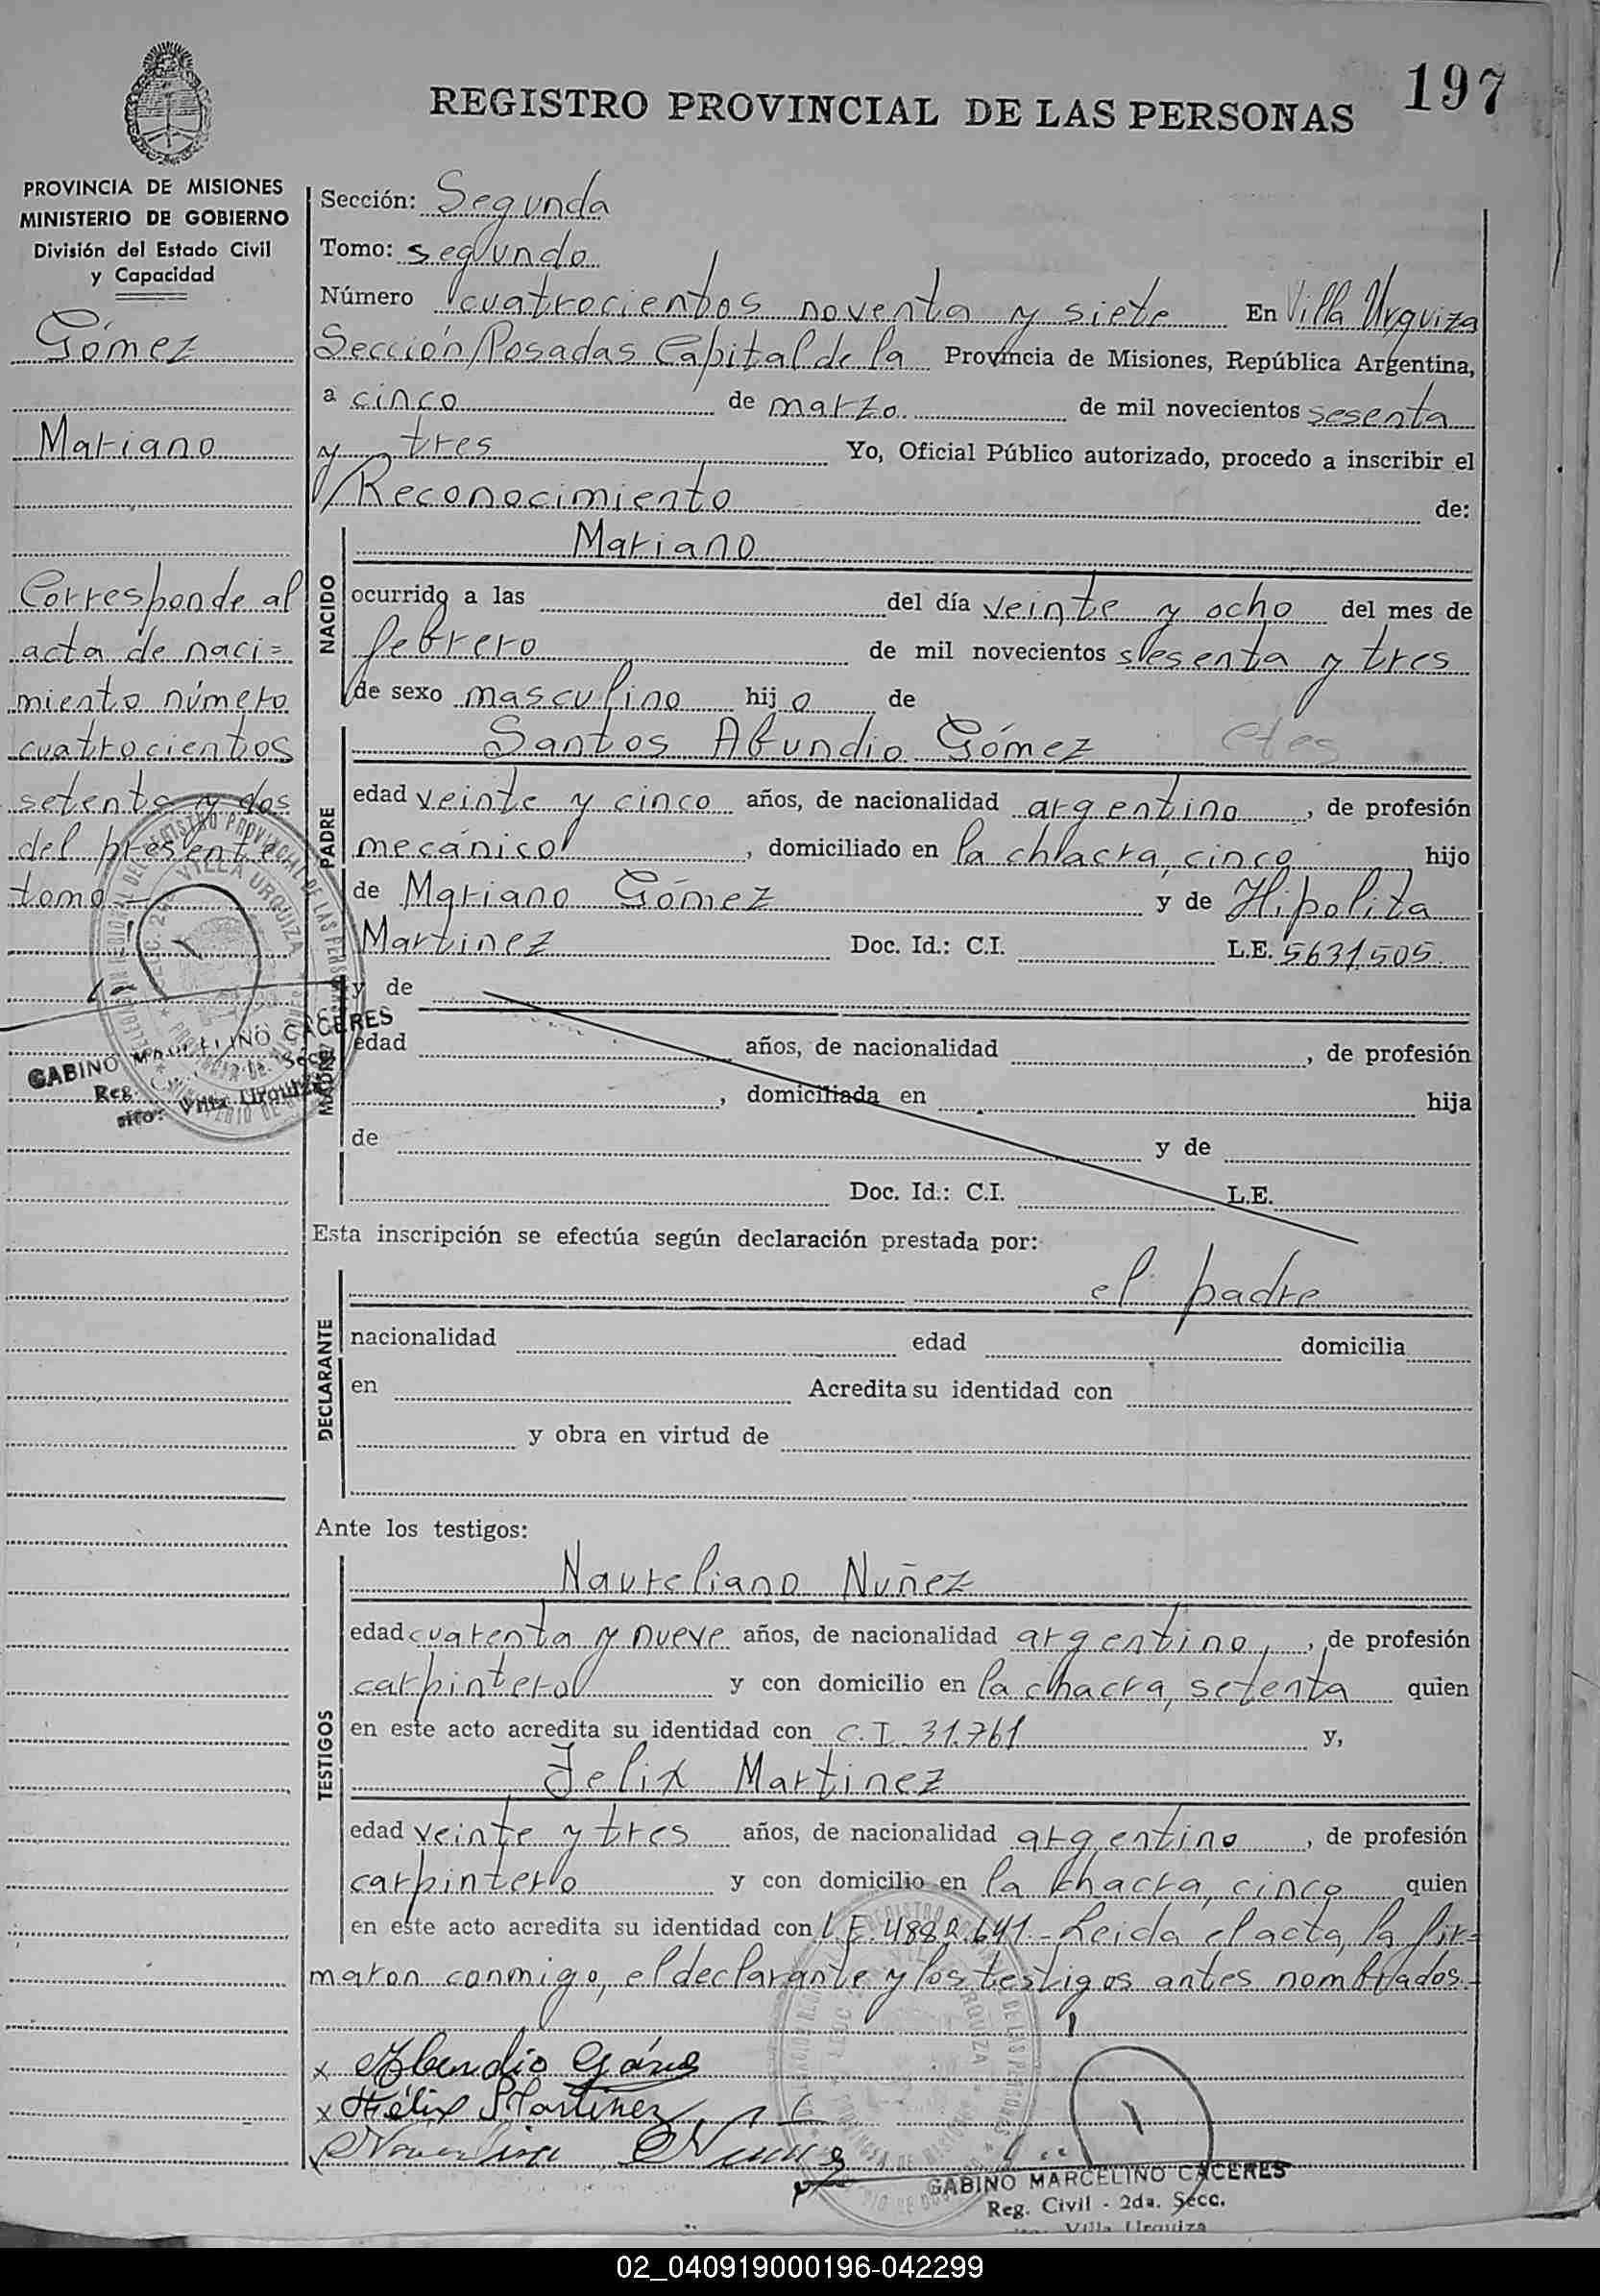 197
REGISTRO PROVINCIAL DE LAS PERSONAS
PROVINCIA DE MISIONES
MINISTERIO DE GOBIERNO
División del Estado Civil
y Capacidad
Gómez
Mariano
Corresponde al
acta de naci=
miento número
cuatrocientos
setenta y dos
del presente
tomo
GABINO MARCELINO CACERES
Sección: Segunda
Tomo: segundo
Número cuatrocientos noventa y siete En Villa Urquiza
Sección Posadas Capital de la Provincia de Misiones, República Argentina,
a cinco de marzo de mil novecientos sesenta
y tres Yo, Oficial Público autorizado, procedo a inscribir el
Reconocimiento de:
NACIDO
Mariano
ocurrido a las del día veinte y ocho del mes de
febrero de mil novecientos sesenta y tres
de sexo masculino hijo de
PADRE
Santos Abundio Gómez
edad veinte y cinco años, de nacionalidad argentino, de profesión
mecánico, domiciliado en la chacra, cinco hijo
de Mariano Gómez y de Hipolita
Martinez Doc. Id.: C.I. L.E. 5631,505
y de
MADRE
edad años, de nacionalidad , de profesión
, domiciliada en hija
de y de
Doc. Id.: C.I. L.E.
Esta inscripción se efectúa según declaración prestada por:
DECLARANTE
el padre
nacionalidad edad domicilia
en Acredita su identidad con
y obra en virtud de
Ante los testigos:
TESTIGOS
Naureliano Nuñez
edad cuarenta y nueve años, de nacionalidad argentino, de profesión
carpintero y con domicilio en la chacra, setenta quien
en este acto acredita su identidad con C.I. 31.761 y,
Felix Martinez
edad veinte y tres años, de nacionalidad argentino, de profesión
carpintero y con domicilio en la chacra, cinco quien
en este acto acredita su identidad con L.E. 4882.641.- Leida el acta, la fir=
maron conmigo, el declarante y los testigos antes nombrados.-
x Abundio Gómez
x Félix Martinez
GABINO MARCELINO CACERES
Reg. Civil - 2da. Secc.
Villa Urquiza
02_040919000196-042299